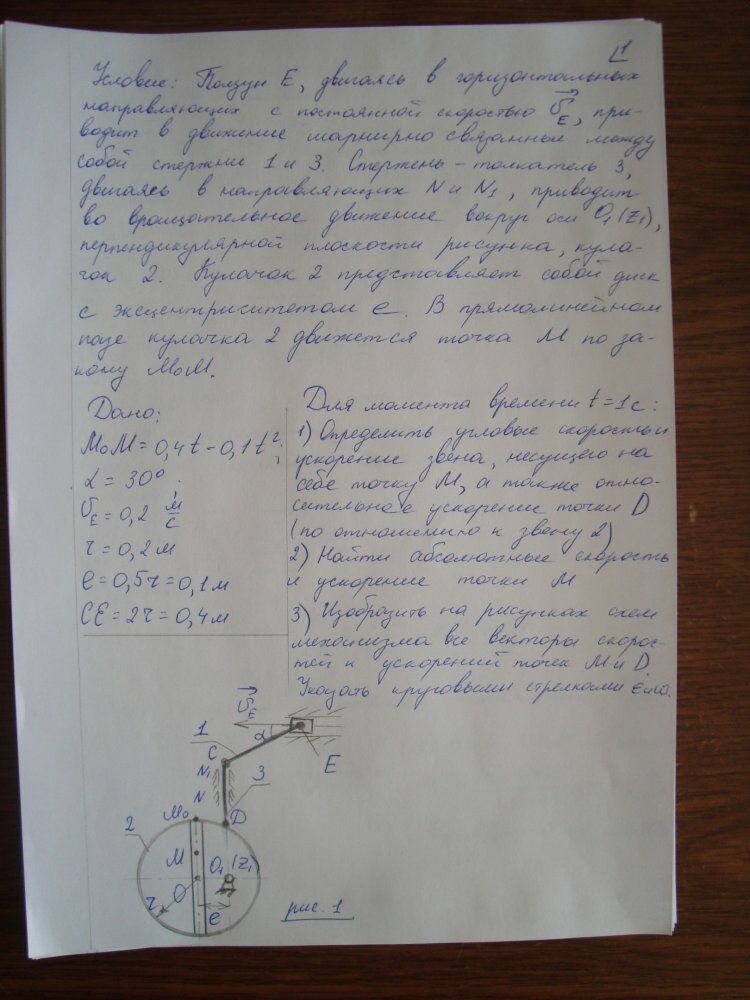 1
Условие: Ползун Е, двигаясь в горизонтальных
направляющих с постоянной скоростью V⃗E, при-
водит в движение шарнирно связанные между
собой стержни 1 и 3. Стержень - толкатель 3,
двигаясь в направляющих N и N1, приводит
во вращательное движение вокруг оси O1(Z1),
перпендикулярной плоскости рисунка, кула-
чок 2. Кулачок 2 представляет собой диск
с эксцентриситетом е. В прямолинейном
пазе кулачка 2 движется точка М по за-
кону МоМ.
Дано:
МоМ = 0,4t - 0,1t²;
α = 30°
VE = 0,2 м/с
r = 0,2 м
e = 0,5r = 0,1 м
CE = 2r = 0,4 м
Для момента времени t = 1с:
1) Определить угловые скорость и
ускорение звена, несущего на
себе точку М, а также отно-
сительное ускорение точки D
(по отношению к звену 2)
2) Найти абсолютные скорость
и ускорение точки М
3) Изобразить на рисунках схем
механизма все векторы скорос-
тей и ускорений точек М и D.
Указать круговыми стрелками ε и ω.
V⃗E
α
1
C
E
N1
N
3
Mo
D
2
M
O1(Z1)
O
r
e
рис. 1